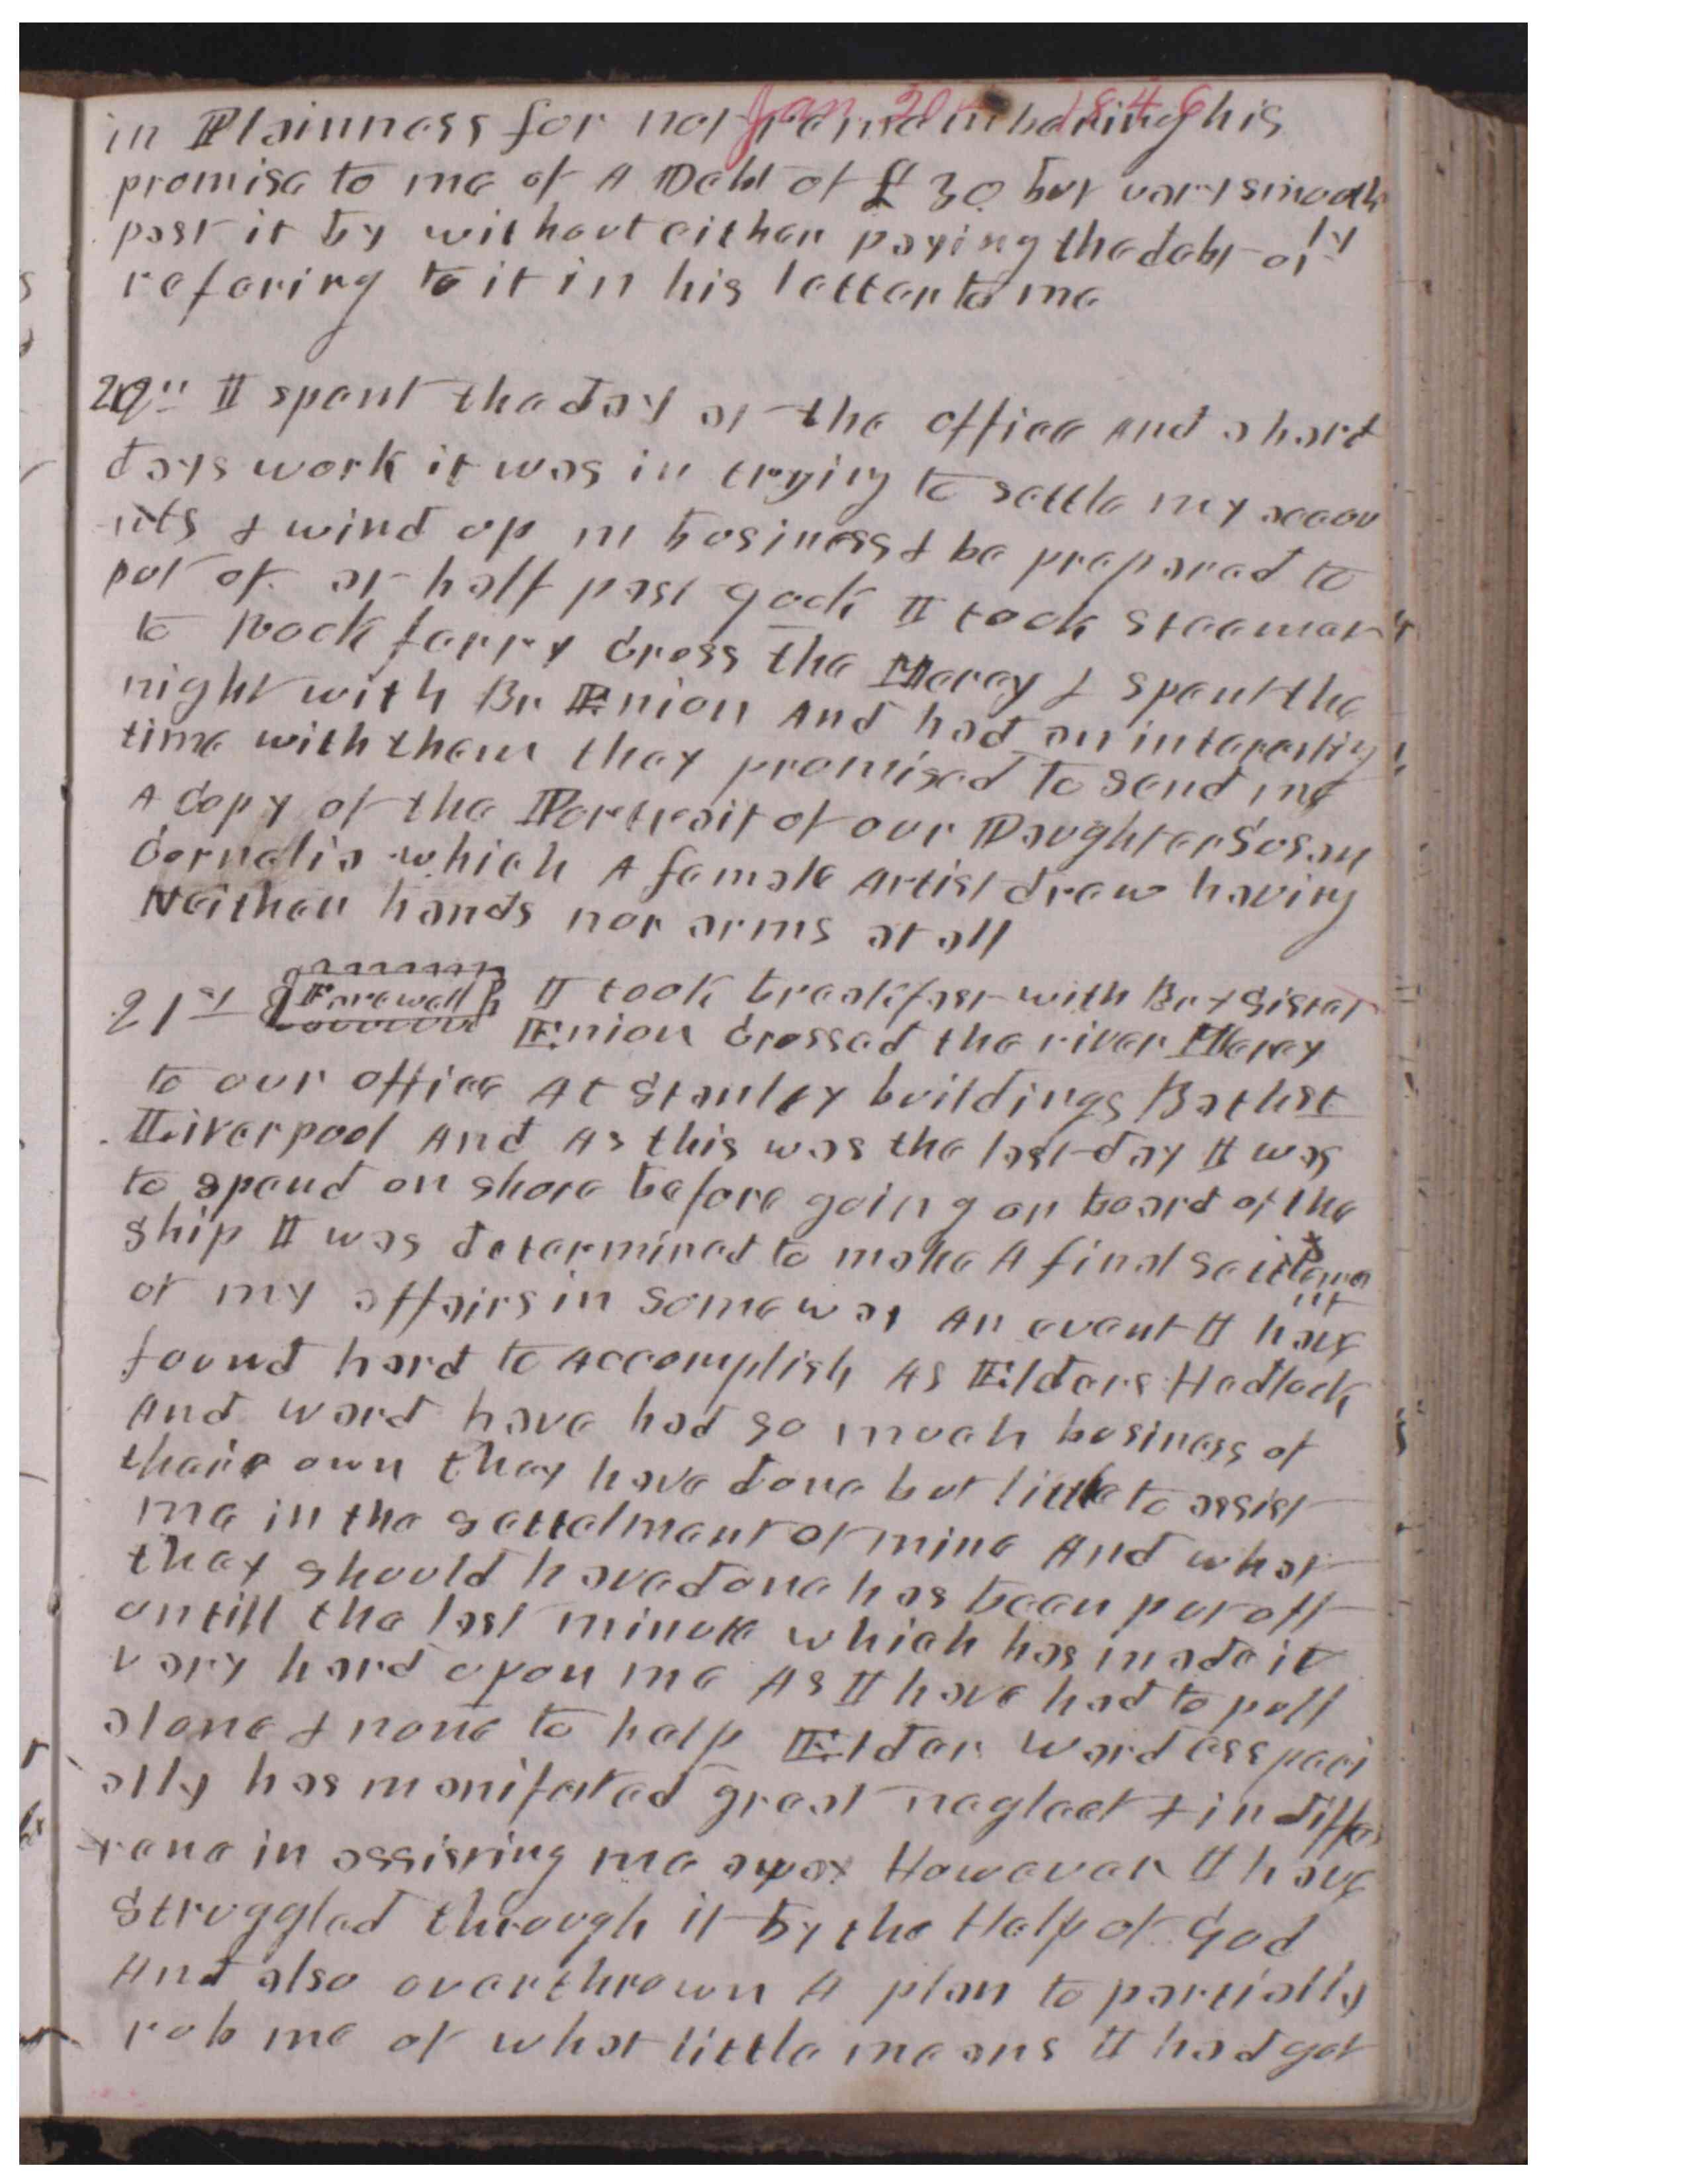 Jan. 20th 1846
in Plainness for not rememberiing his
promise to me of A Debt of £30 but very smooth
ly
past it by without either paying the debt or
refering to it in his letter to me
20th I spent the day at the office And a hard
days work it was in trying to settle my accou
nts & wind up m business & be prepared to
put of. at half past 9 ock I took steemer
to Rock ferry cross the Mercy & spent the
night with Br Enion And had an interesting
time with them they promised to send me
A copy of the Portrait of our Daughter Susan
Cornelia which A female Artist drew having
Neither hands nor arms at all
21st Farewell I took breakfast with Br & Sister
Enion crossed the river Mercy
to our office At Stanley buildings Bath st
Liverpool And As this was the last day I was
to spend on shore before going on board of the
ship I was determined to make A final settleme
nt
of my affairs in some way An event I have
found hard to Accomplish As Elders Hedlock
And Ward have had so much business of
their own they have done but little to assist
me in the settelment of mine And what
they should have done has been put off
untill the last minute which has made it
vary hard upon me As I have had to pull
alone & none to help Elder Ward esspeci
ally has manifested great neglect & indiffe
rence in assisting me away However I have
struggled through it by the Help of God
And also overthrown A plan to partially
rob me of what little means I had got